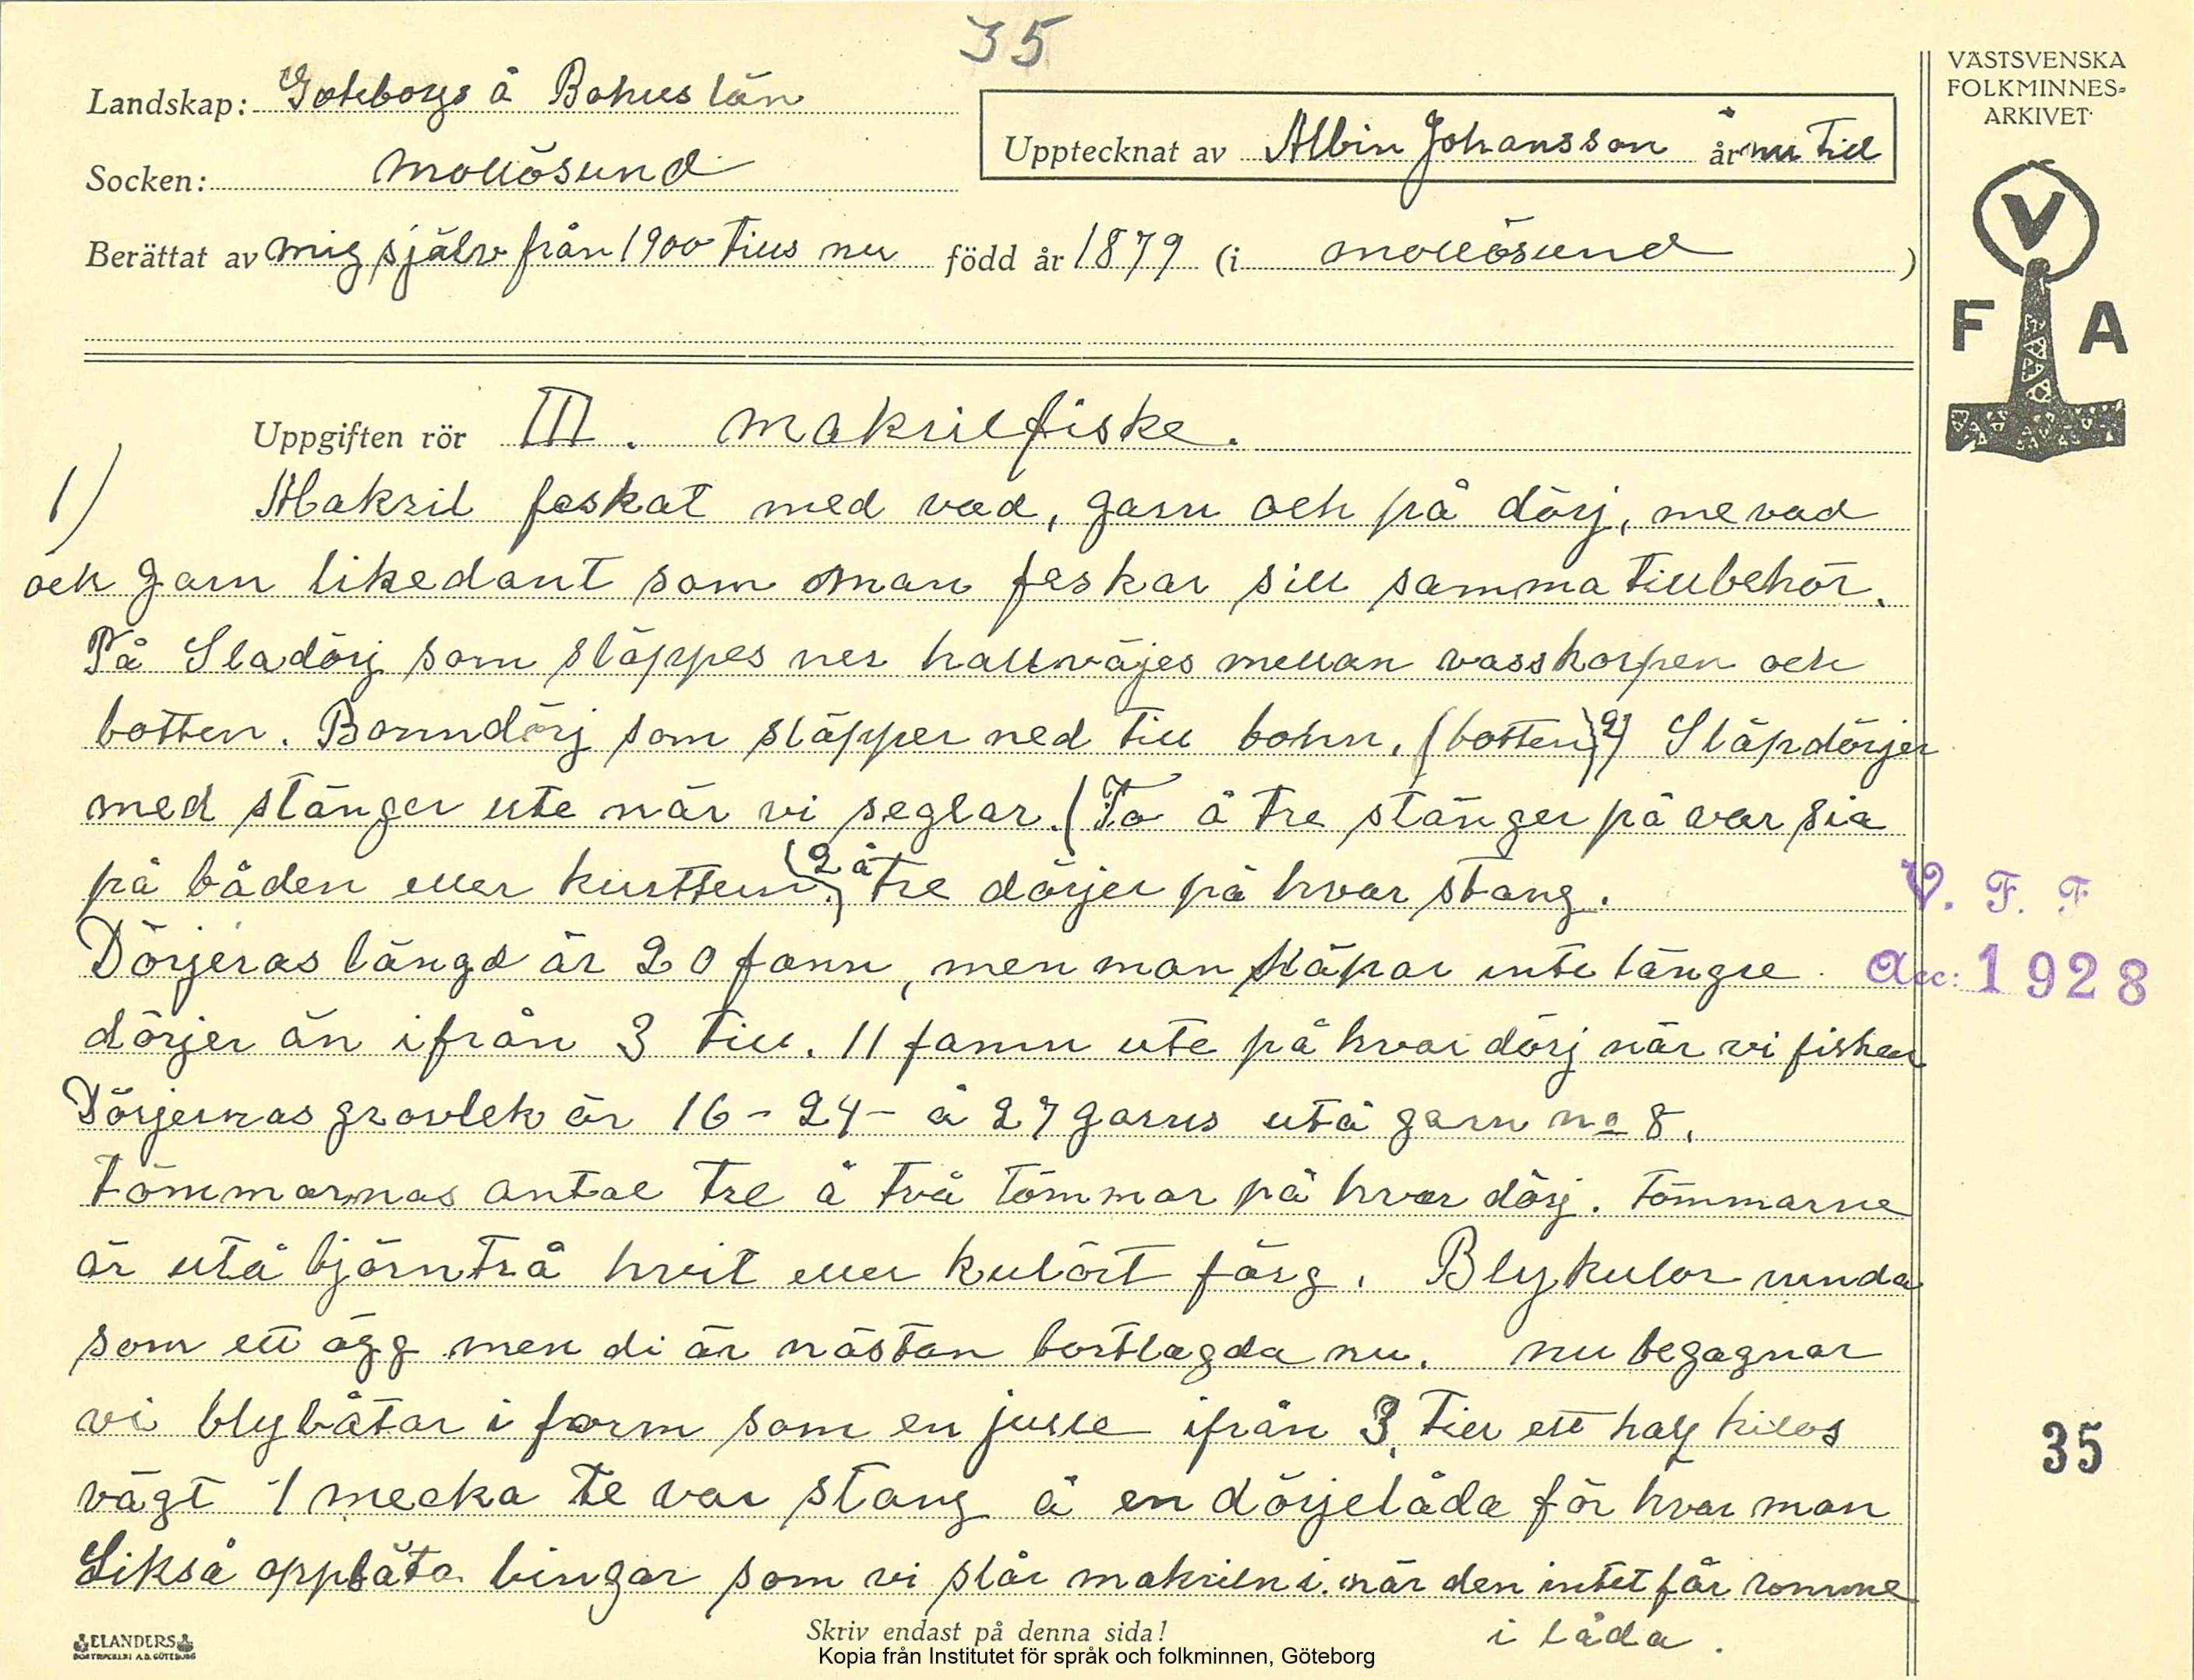 35
VÄSTSVENSKA
FOLKMINNES-
ARKIVET
Landskap: Göteborgs å Bohus län
Upptecknat av Albin Johansson år nu till
Socken: Mollösund
Berättat av mig själv från 1900 tius nu född år 1879 (i Mollösund)
V
F A
Uppgiften rör III. Makrillfiske.
1) Makril feskat med vad, garn och på dörj, me vad
och garn likedant som man feskar sill samma tillbehör.
På Sladörj som släppes ner hallväjes mellan vasskorpen och
botten. Bonndörj som släpper ned till bohn. (botten) 2) Släpdörjer
med stänger ute när vi seglar. (To å tre stänger på var sia
på båden eller kuttern) (2 å tre dörjer på hvar stang.
V. F. F
Dörjeras längd är 20 famn, men man släpar inte längre
Acc: 1928
dörjer än ifrån 3 till. 11 famn ute på hvar dörj när vi fisker
Dörjernas grovlek är 16 - 24 - å 27 garns utå garn no 8.
Tömmarnas antal tre å två tömmar på hvar dörj. Tömmarne
är utå björntrå hvit eller kulört färg. Blykulor runda
som ett ägg men di är nästan bortlagda nu. nu begagnar
vi blybåtar i form som en julle ifrån 3 till ett half kilos
35
vägt 1 mecka te var stang å en dörjelåda för hvar man
Likså oppbåta bingar som vi slår makrilln i. när den intet får romme
i låda.
Skriv endast på denna sida!
ELANDERS
BOKTRYCKERI A.B. GÖTEBORG
Kopia från Institutet för språk och folkminnen, Göteborg